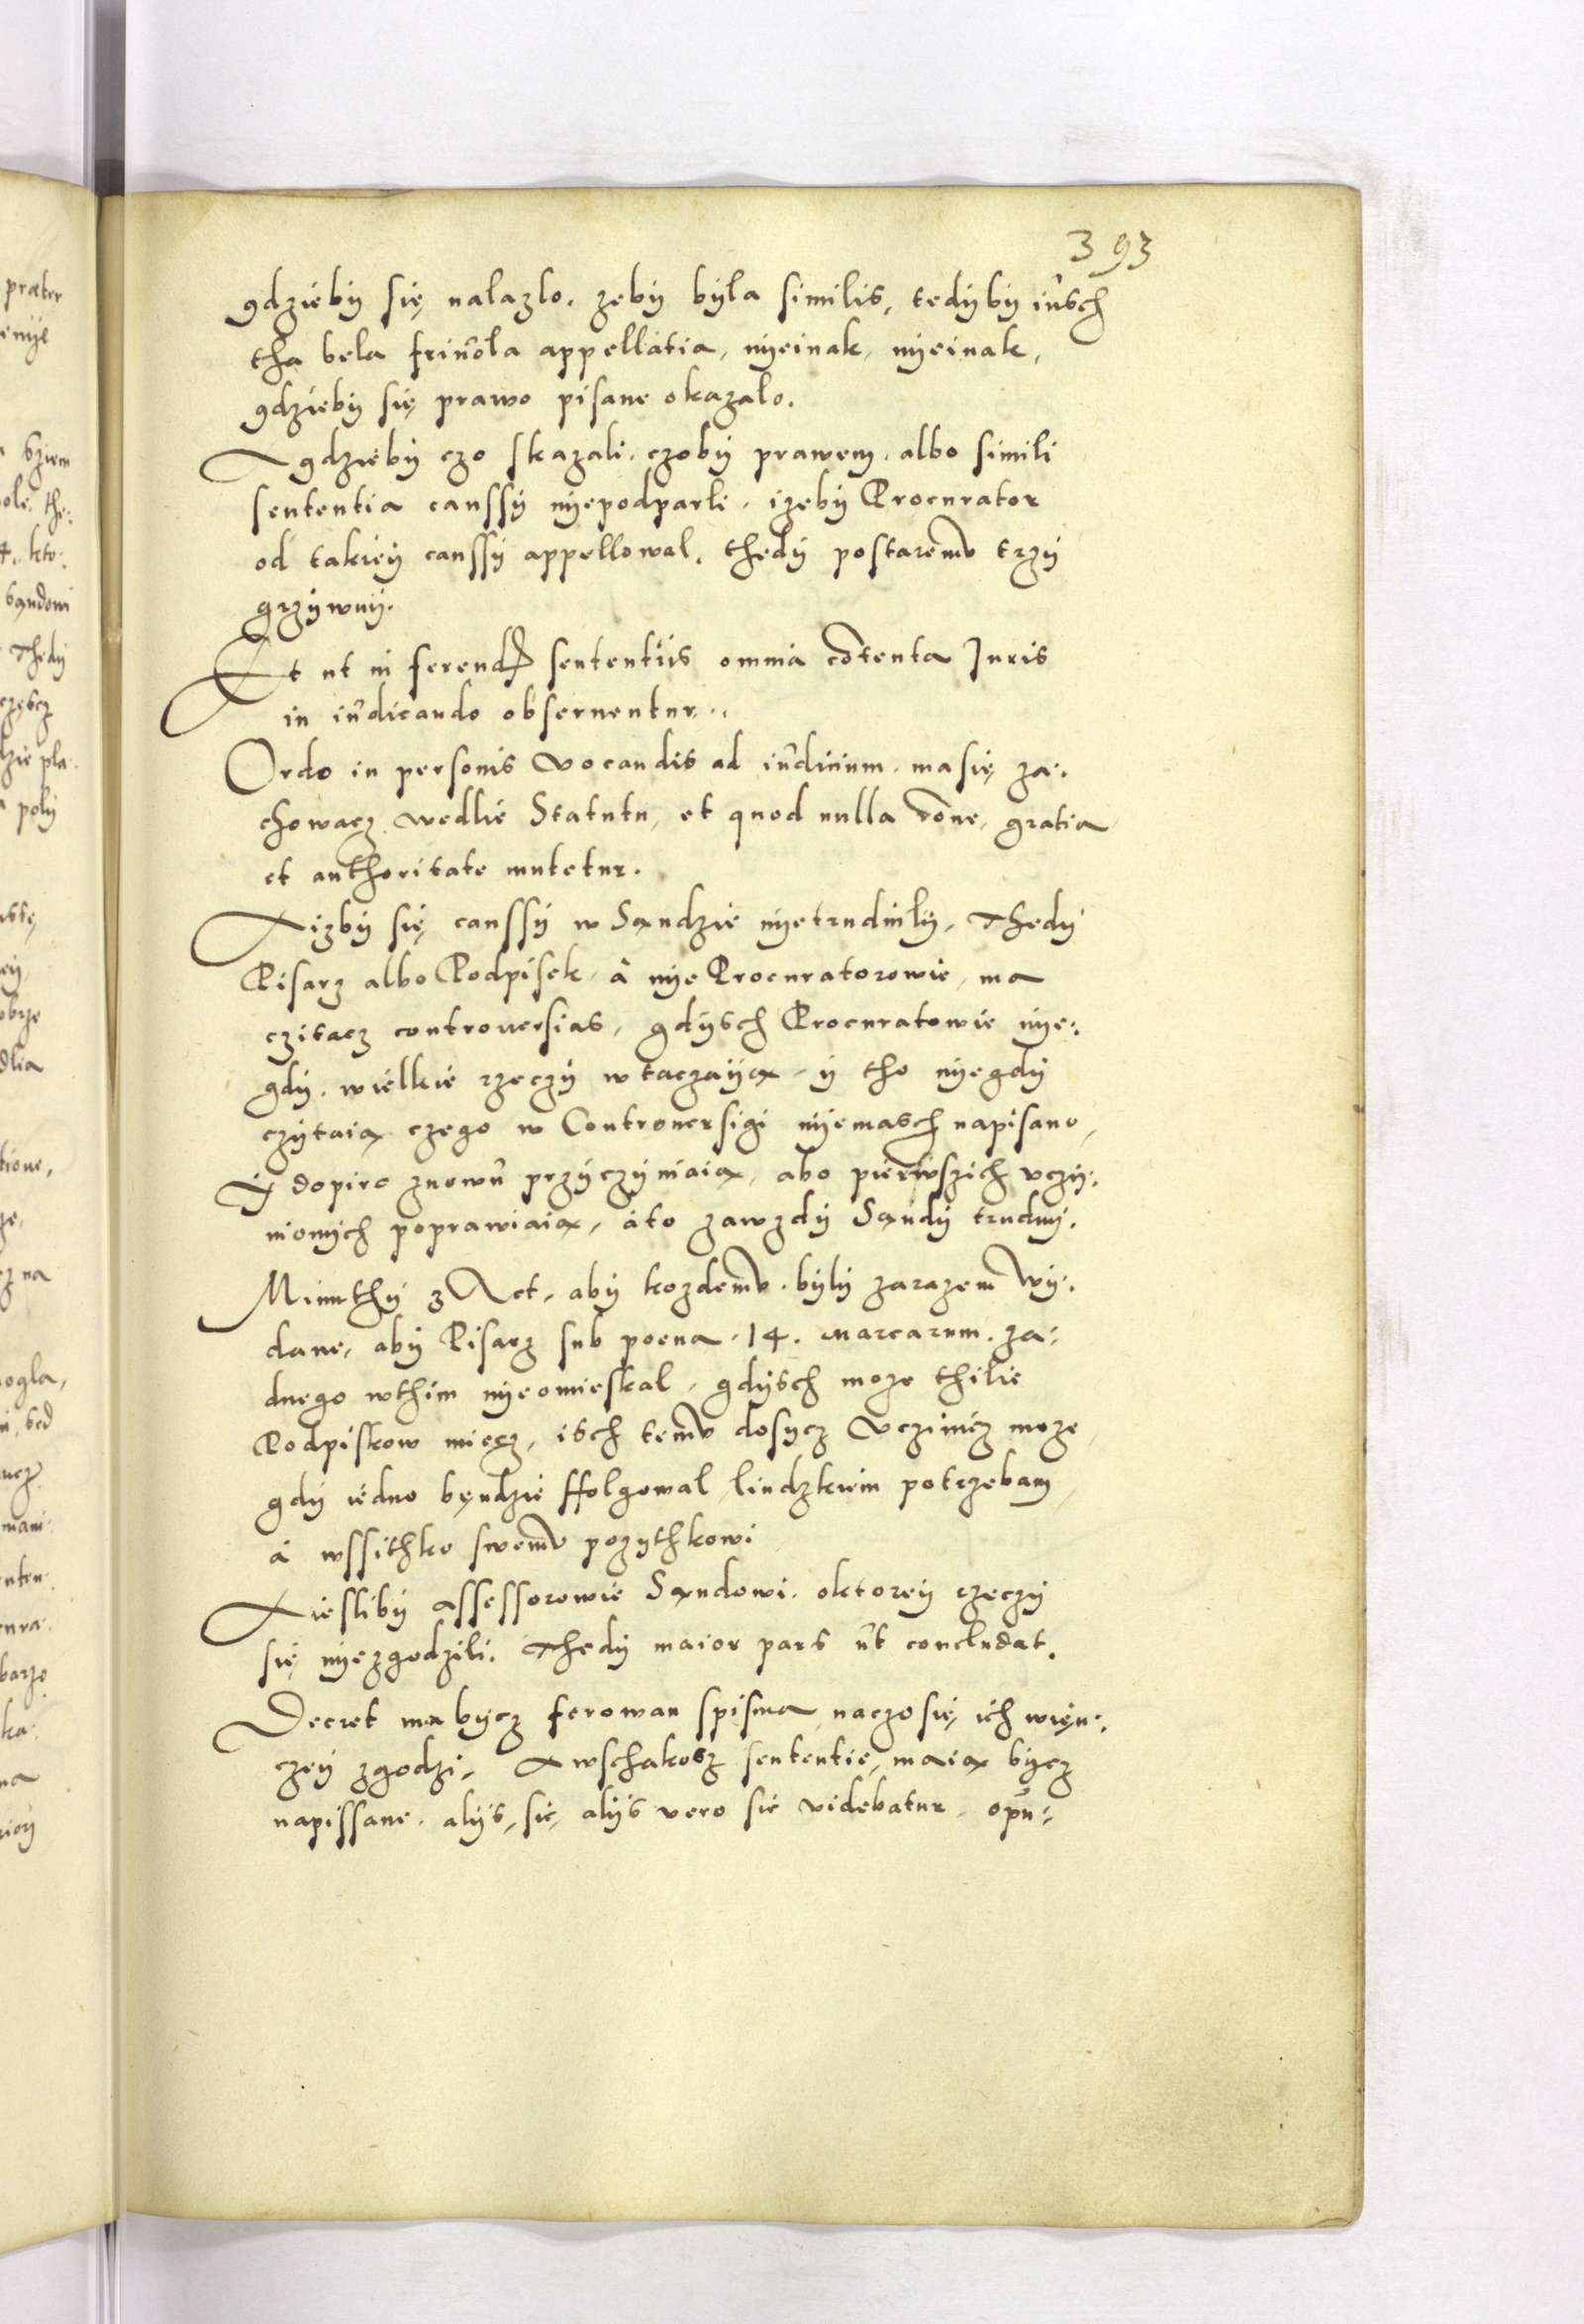 393
gdzieby się nalazlo. zeby byla similis, tedyby iusch
tha bela friuola appellatia, nyeinak, nyeinak,
gdzieby się prawo pisane okazalo.
A gdzieby czo skazali. czoby prawem. albo simili
sententia caussy nyepodparli. izeby Procurator
od takiey caussy appellowal. thedy postaremu trzy
grzywny.
Et ut in ferend sententiis omnia cōtenta Juris
in iudicando obseruentur.
Ordo in personis vocandis ad iudicium. ma się za:
chowacz wedlie Statutu, et quod nulla rōne, gratia
et authoritate mutetur.
A izby się caussy w Sąndzie nyetrudnily, Thedy
Pisarz albo Podpisek. a nye Procuratorowie, ma
czitacz controuersias, gdysch Procuratowie nye:
gdy. wielkie rzeczy wtaczayą. y tho nyegdy
czytaią czego w Controuersigi nyemasch napisano,
Y dopiro znowu przyczyniaią, abo pierwszich vczy:
nionych poprawiaią, ato zawzdy Sąndy trudny.
Minuthy z Act, aby kozdemu. byly zarazem wy:
dane, aby Pisarz sub poena. 14. marcarum. za:
dnego wthim nyeomieskal, gdysch moze thilie
Podpiskow miecz, isch temu dosycz vczinicz moze,
gdy iedno będzie ffolgowal liudzkiem potrzebam,
a wssithko swemu pozythkowi
A iesliby assessorowie Sąndowi. oktorey rzeczy
się nyezgodzili. Thedy maior pars ut concludat.
Decret ma bycz ferowan spisma naczo się ich więn:
czey zgodzi, A wschakosz sententie, maią bycz
napissane. alys, sic, alys vero sic videbatur. opin:
prater
enye
Thedy
sąndowi
dlia
tione,
ogla,